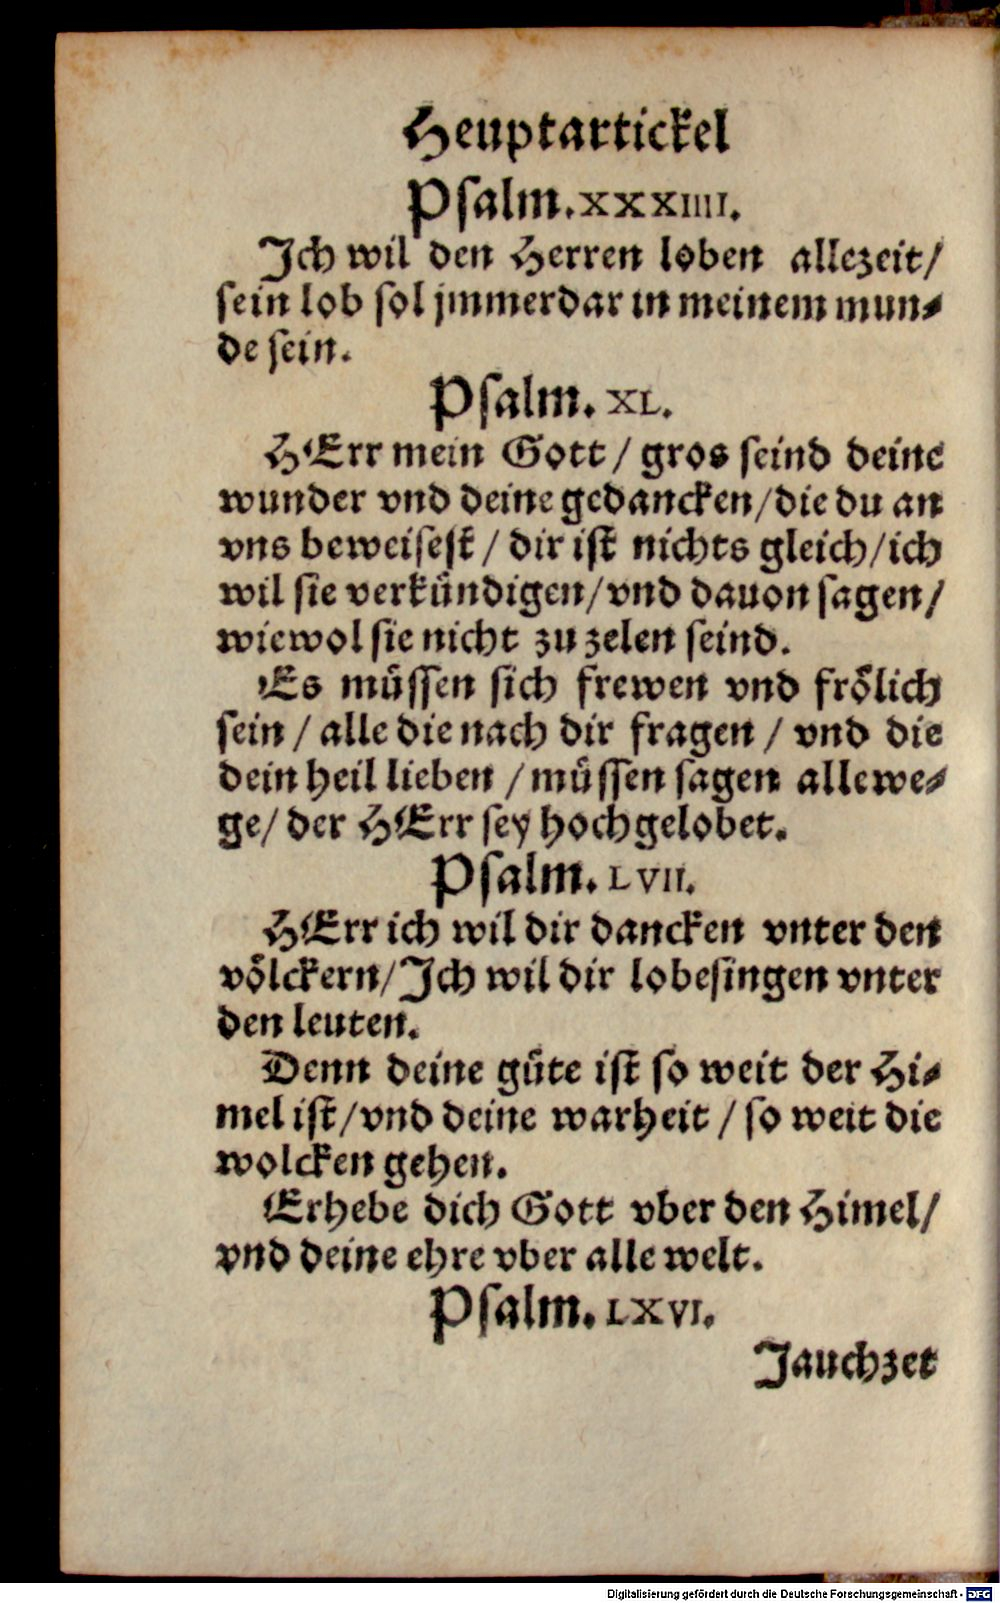 Heuptartickel
Psalm. XXXIIII.
Ich wil den Herren loben allezeit/
sein lob sol jmmerdar in meinem mun⸗
de sein.
Psalm. XL.
HErr mein Gott / gros seind deine
wunder vnd deine gedancken/die du an
vns beweisest / dir ist nichts gleich/ich
wil sie verkündigen/vnd dauon sagen/
wiewol sie nicht zu zelen seind.
Es müssen sich frewen vnd frölich
sein / alle die nach dir fragen / vnd die
dein heil lieben / müssen sagen allewe⸗
ge/ der HErr sey hochgelobet.
Psalm. LVII.
HErr ich wil dir dancken vnter den
völckern/Ich wil dir lobesingen vnter
den leuten.
Denn deine güte ist so weit der Hi⸗
mel ist/vnd deine warheit / so weit die
wolcken gehen.
Erhebe dich Gott vber den Himel/
vnd deine ehre vber alle welt.
Psalm. LXVI.
Jauchzet
Digitalisierung gefördert durch die Deutsche Forschungsgemeinschaft - DFG